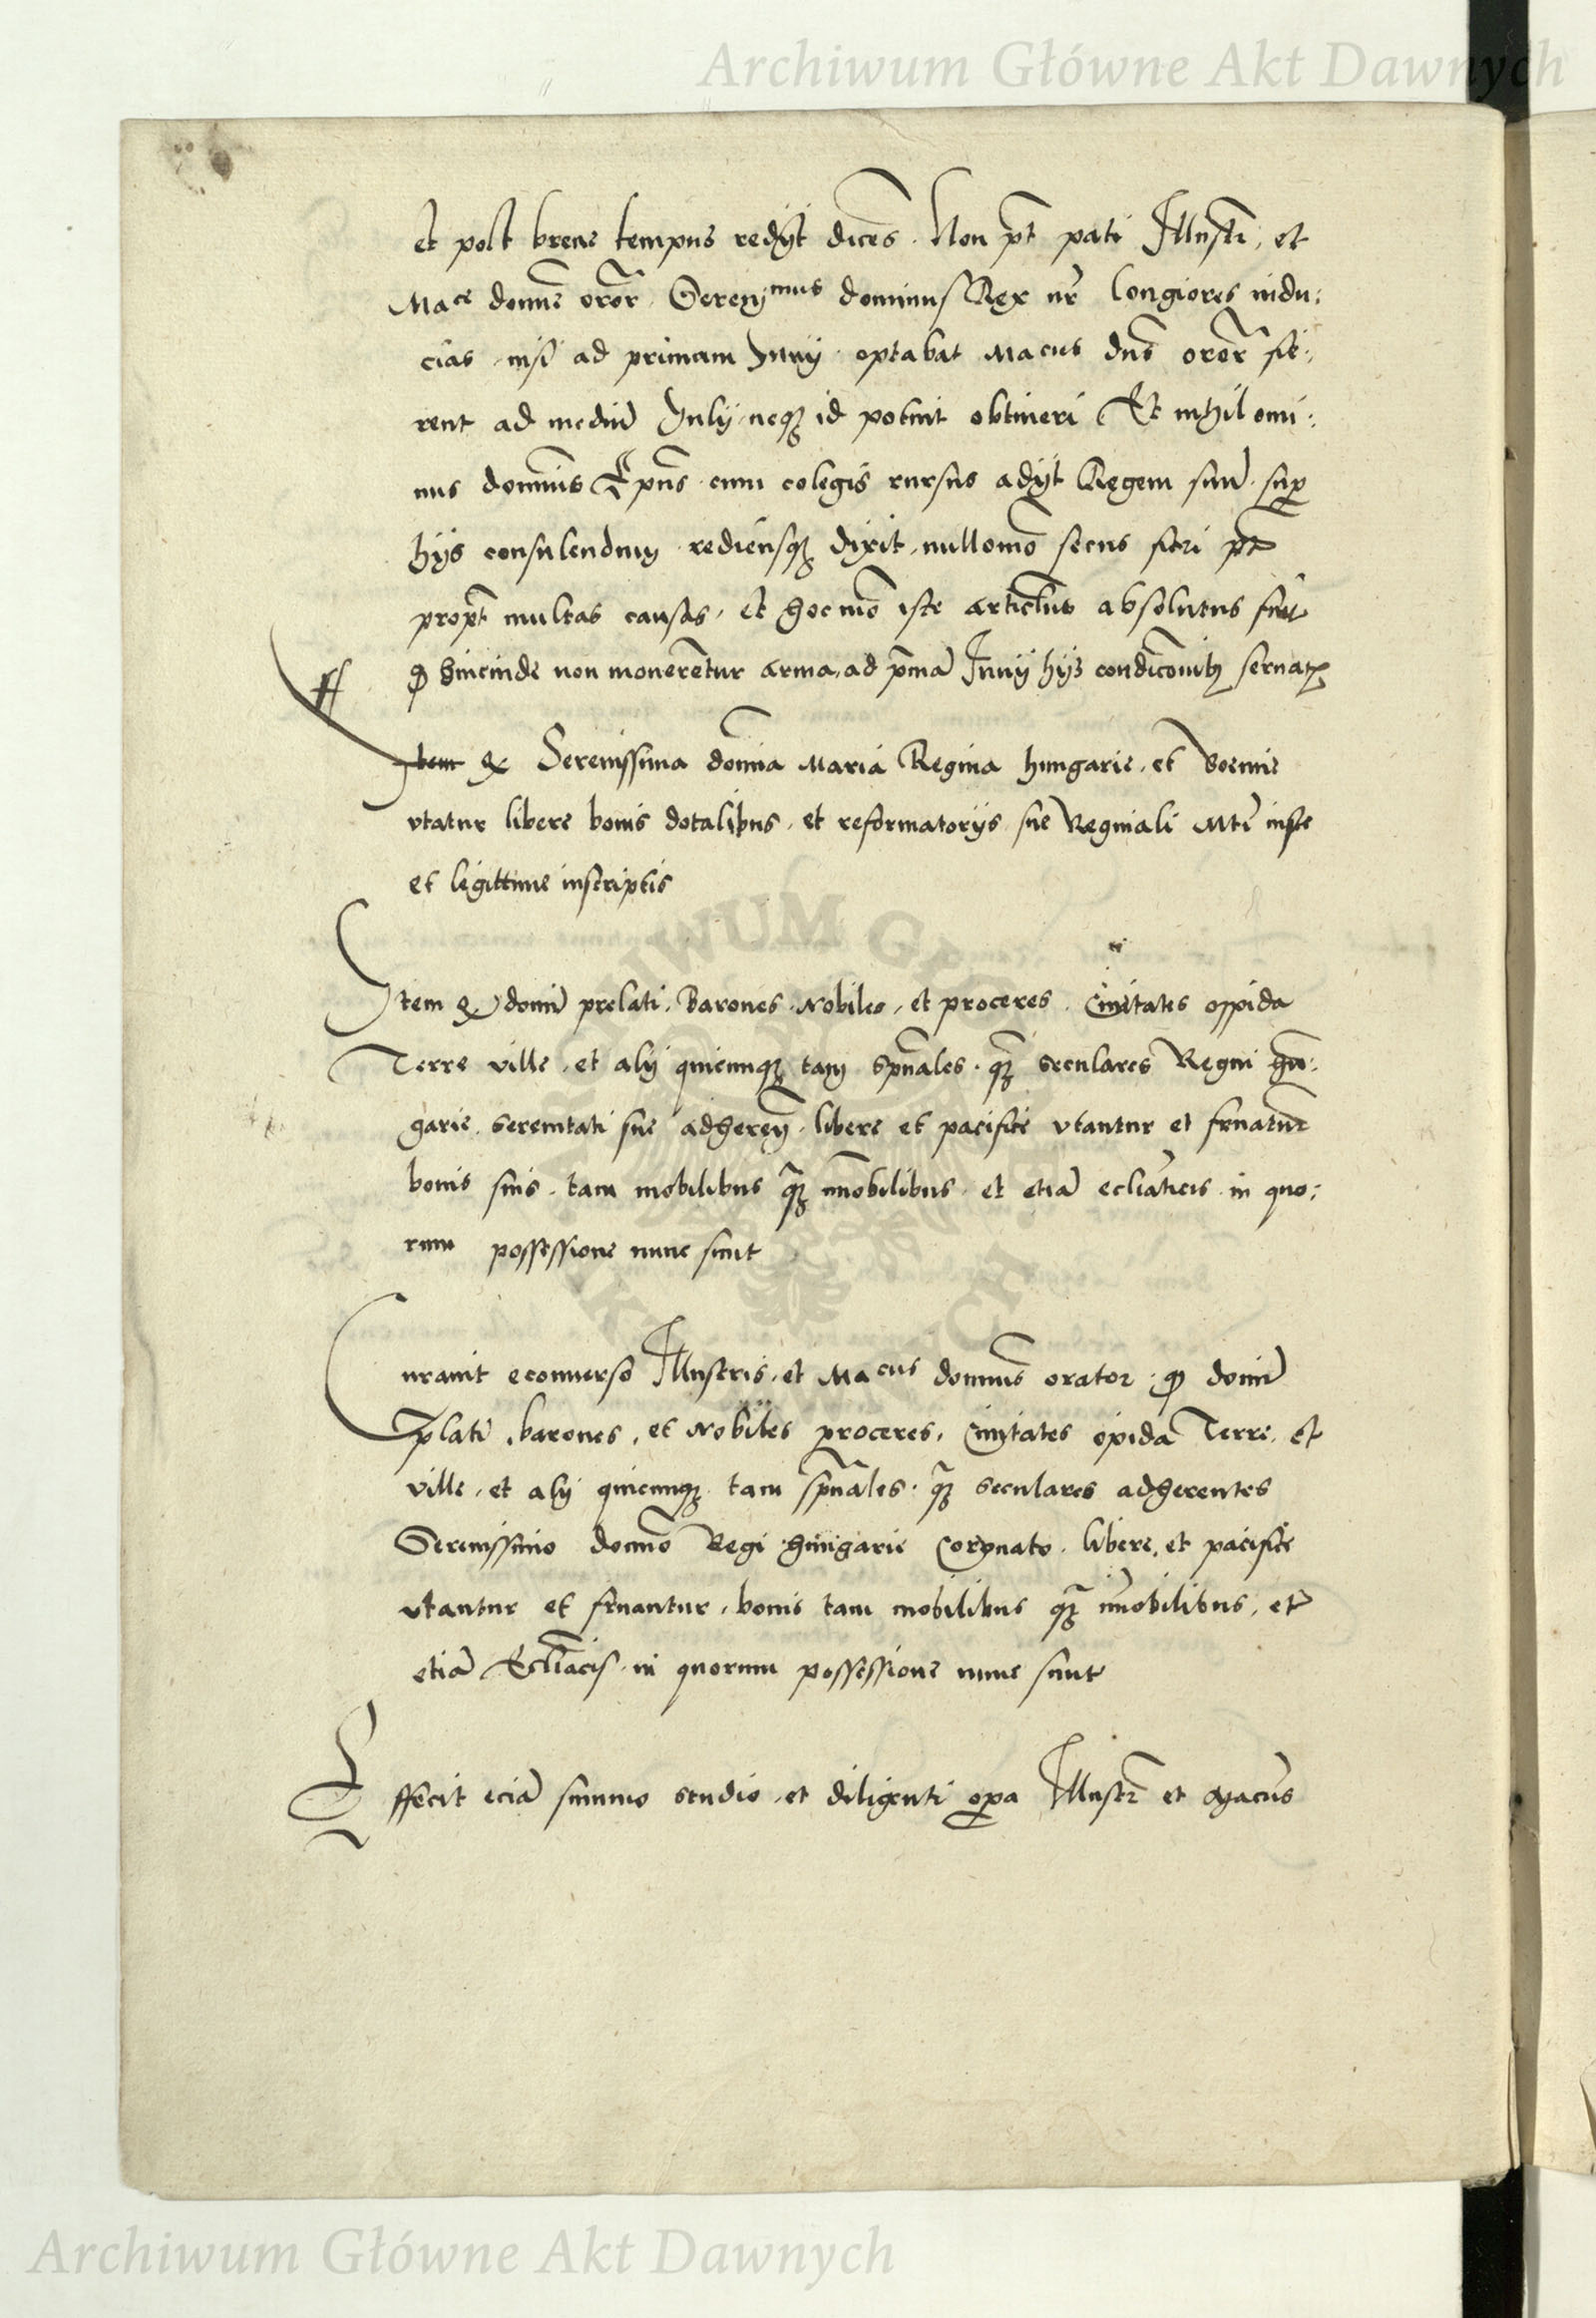 Archiwum Główne Akt Dawnych
et post breue tempus redÿt dices. Non pt pati Illustr, et
Mace domine oror, Serenimus dominus Rex nr longiores indu:
cias, nisi ad primam Junÿ. optabat Macus dns oror fie:
rent ad mediu Julÿ, neqꝫ id potuit obtineri Et nihilomi:
nus dominus Epus cum colegis rursus adÿt Regem suu. sup
hÿs consulendum rediensqꝫ dixit, nullomo secus fieri pt
propt multas causas, et hoc mo iste articlus absolutus fuit
ꝙ hincinde non mouerentur arma, ad pma Junÿ hÿs condicionibꝫ seruatꝭ
Item ꝙ Serenissima domina Maria Regina hungarie, et Boemie
vtatur libere bonis dotalibus, et reformatorÿs sue Reginali Mti iuste
et legittime inscriptis
Item ꝙ domi prelati, Barones, Nobiles, et proceres, Ciuitates oppida
Terre ville, et alÿ quicunqꝫ tam spuales, qꝫ seculares Regni hun:
garie serenitati sue adheren, libere et pacifice vtantur et fruatur
bonis suis, tam mobilibus qꝫ imobilibus, et etia ecliaticis in quo:
rum possessione nunc sunt
Curauit econuerso Illustris, et Macus dominus orator, ꝙ domi
plati, barones, et Nobiles proceres, Ciuitates opida Terre, et
ville, et alÿ quicunqꝫ tam spuales, qꝫ seculares adherentes
Serenissimo domino Regi hungarie Coronato, libere, et pacifice
vtantur et fruantur, bonis tam mobilibus qꝫ imobilibus, et
etia Ecliacis in quorum possessione nunc sunt
Effecit ecia summo studio, et diligenti opa Illustr et Macus
ARCHIWUM GŁ
Archiwum Główne Akt Dawnych